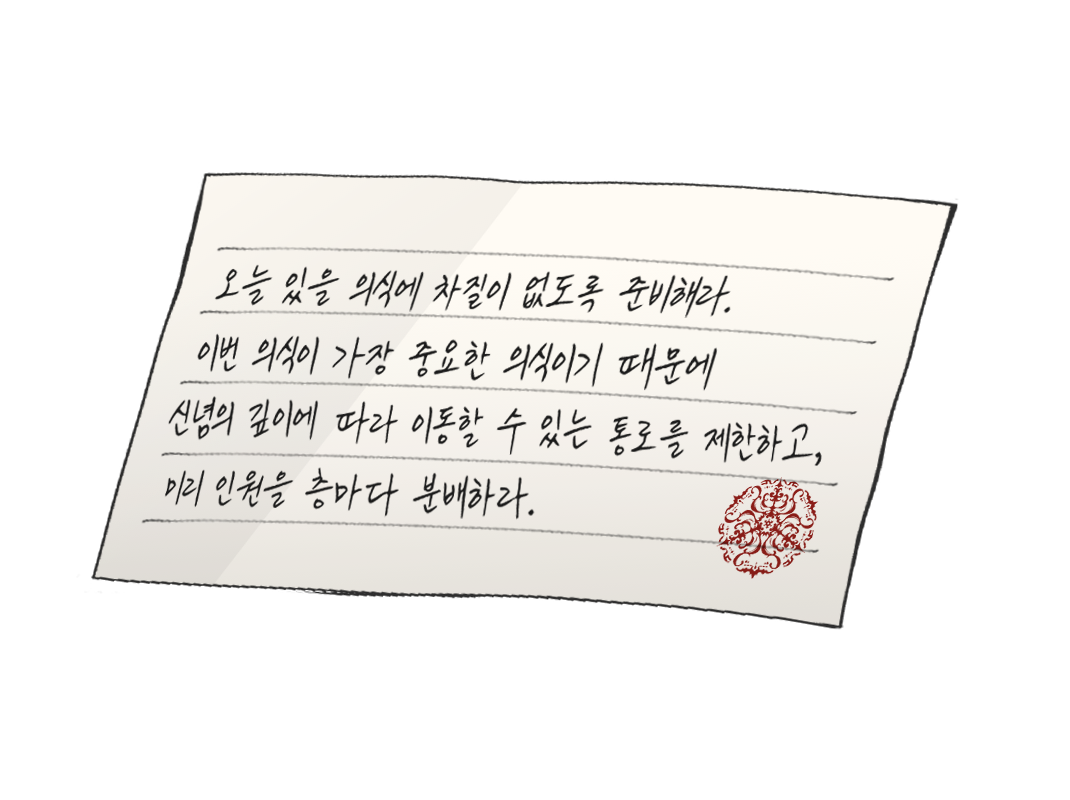 오늘 있을 의식에 차질이 없도록 준비해라.
이번 의식이 가장 중요한 의식이기 때문에
신념의 깊이에 따라 이동할 수 있는 통로를 제한하고,
미리 인원을 층마다 분배하라.